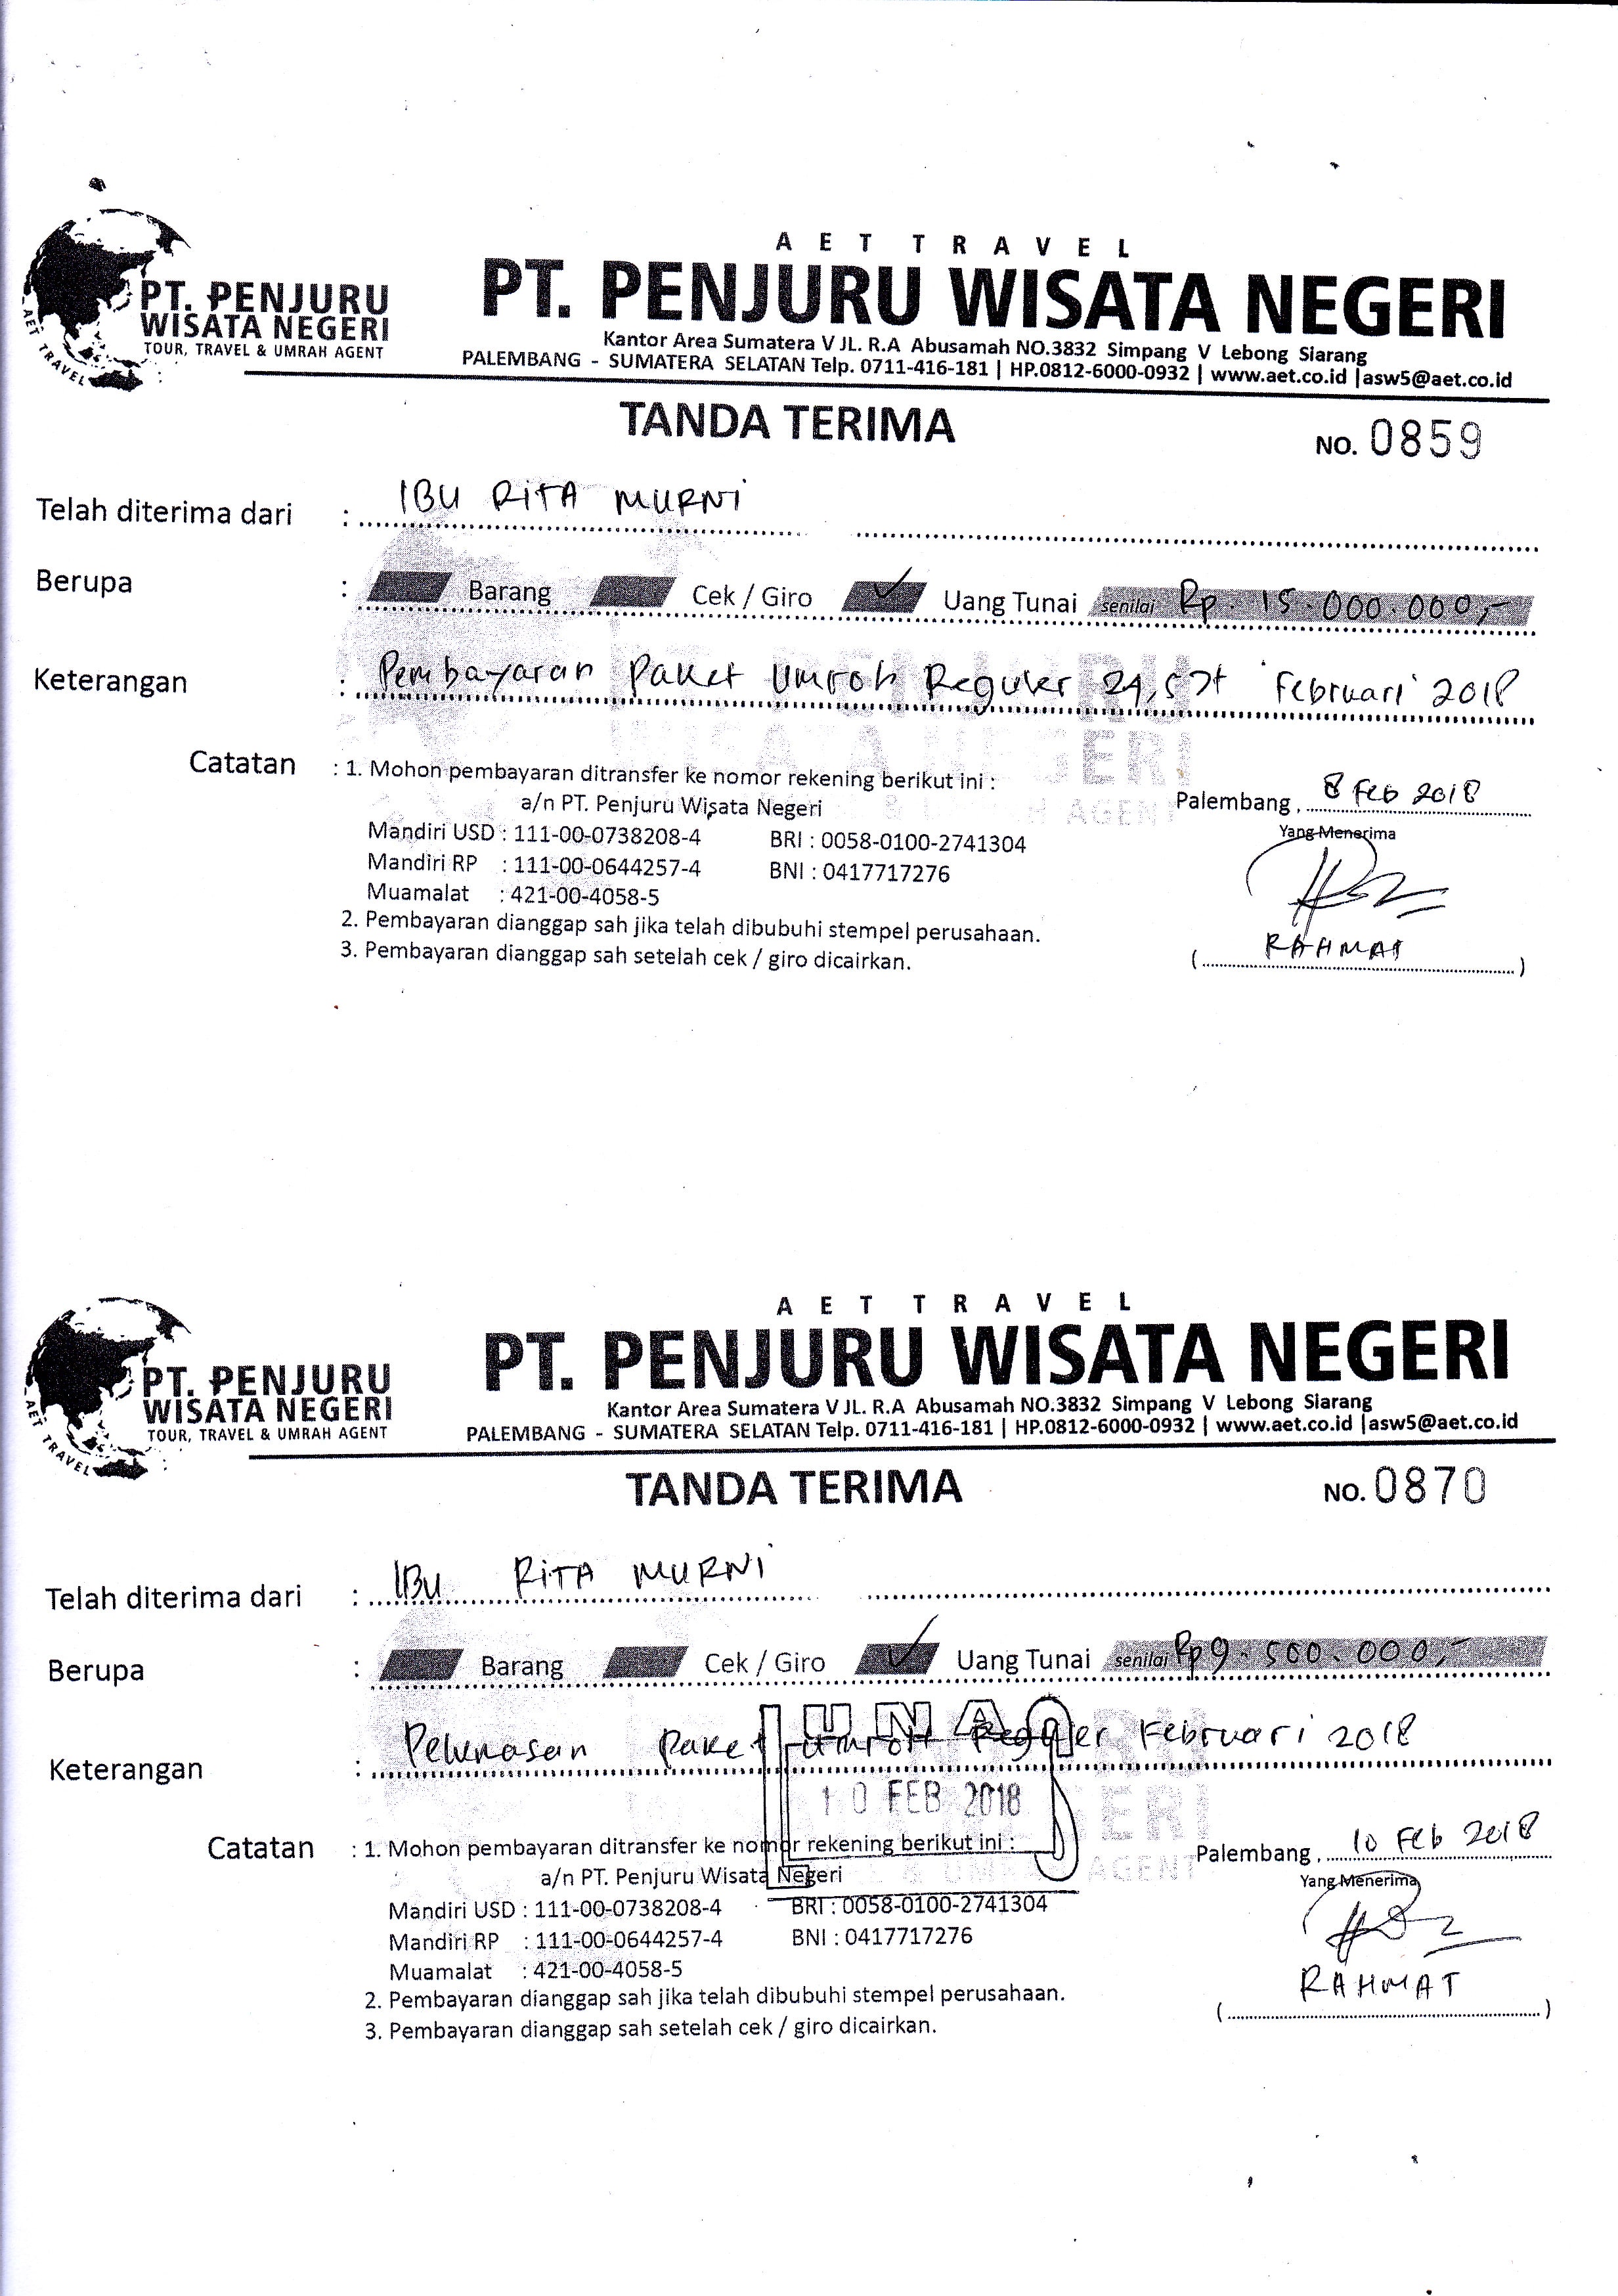 AET TRAVEL
PT. PENJURU WISATA NEGERI
PT. PENJURU
WISATA NEGERI
TOUR, TRAVEL & UMRAH AGENT
AET TRAVEL
Kantor Area Sumatera V JL. R.A Abusamah NO.3832 Simpang V Lebong Siarang
PALEMBANG - SUMATERA SELATAN Telp. 0711-416-181 | HP.0812-6000-0932 | www.aet.co.id |asw5@aet.co.id
TANDA TERIMA
NO. 0859
Telah diterima dari : IBU RITA MURNI
Berupa : Barang Cek / Giro ✓ Uang Tunai senilai Rp. 15.000.000,-
Keterangan : Pembayaran Paket Umroh Reguler 24,5 Jt Februari 2018
Catatan : 1. Mohon pembayaran ditransfer ke nomor rekening berikut ini :
a/n PT. Penjuru Wisata Negeri
Palembang, 8 Feb 2018
Mandiri USD : 111-00-0738208-4 BRI : 0058-0100-2741304
Yang Menerima
Mandiri RP : 111-00-0644257-4 BNI : 0417717276
Muamalat : 421-00-4058-5
2. Pembayaran dianggap sah jika telah dibubuhi stempel perusahaan.
3. Pembayaran dianggap sah setelah cek / giro dicairkan.
(RAHMAT)
AET TRAVEL
PT. PENJURU WISATA NEGERI
PT. PENJURU
WISATA NEGERI
TOUR, TRAVEL & UMRAH AGENT
AET TRAVEL
Kantor Area Sumatera V JL. R.A Abusamah NO.3832 Simpang V Lebong Siarang
PALEMBANG - SUMATERA SELATAN Telp. 0711-416-181 | HP.0812-6000-0932 | www.aet.co.id |asw5@aet.co.id
TANDA TERIMA
NO. 0870
Telah diterima dari : IBU RITA MURNI
Berupa : Barang Cek / Giro ✓ Uang Tunai senilai Rp 9.500.000,-
Keterangan : Pelunasan Paket Umroh Reguler Februari 2018
LUNAS
10 FEB 2018
Catatan : 1. Mohon pembayaran ditransfer ke nomor rekening berikut ini :
a/n PT. Penjuru Wisata Negeri
Palembang, 10 Feb 2018
Yang Menerima
Mandiri USD : 111-00-0738208-4 BRI : 0058-0100-2741304
Mandiri RP : 111-00-0644257-4 BNI : 0417717276
Muamalat : 421-00-4058-5
2. Pembayaran dianggap sah jika telah dibubuhi stempel perusahaan.
3. Pembayaran dianggap sah setelah cek / giro dicairkan.
(RAHMAT)